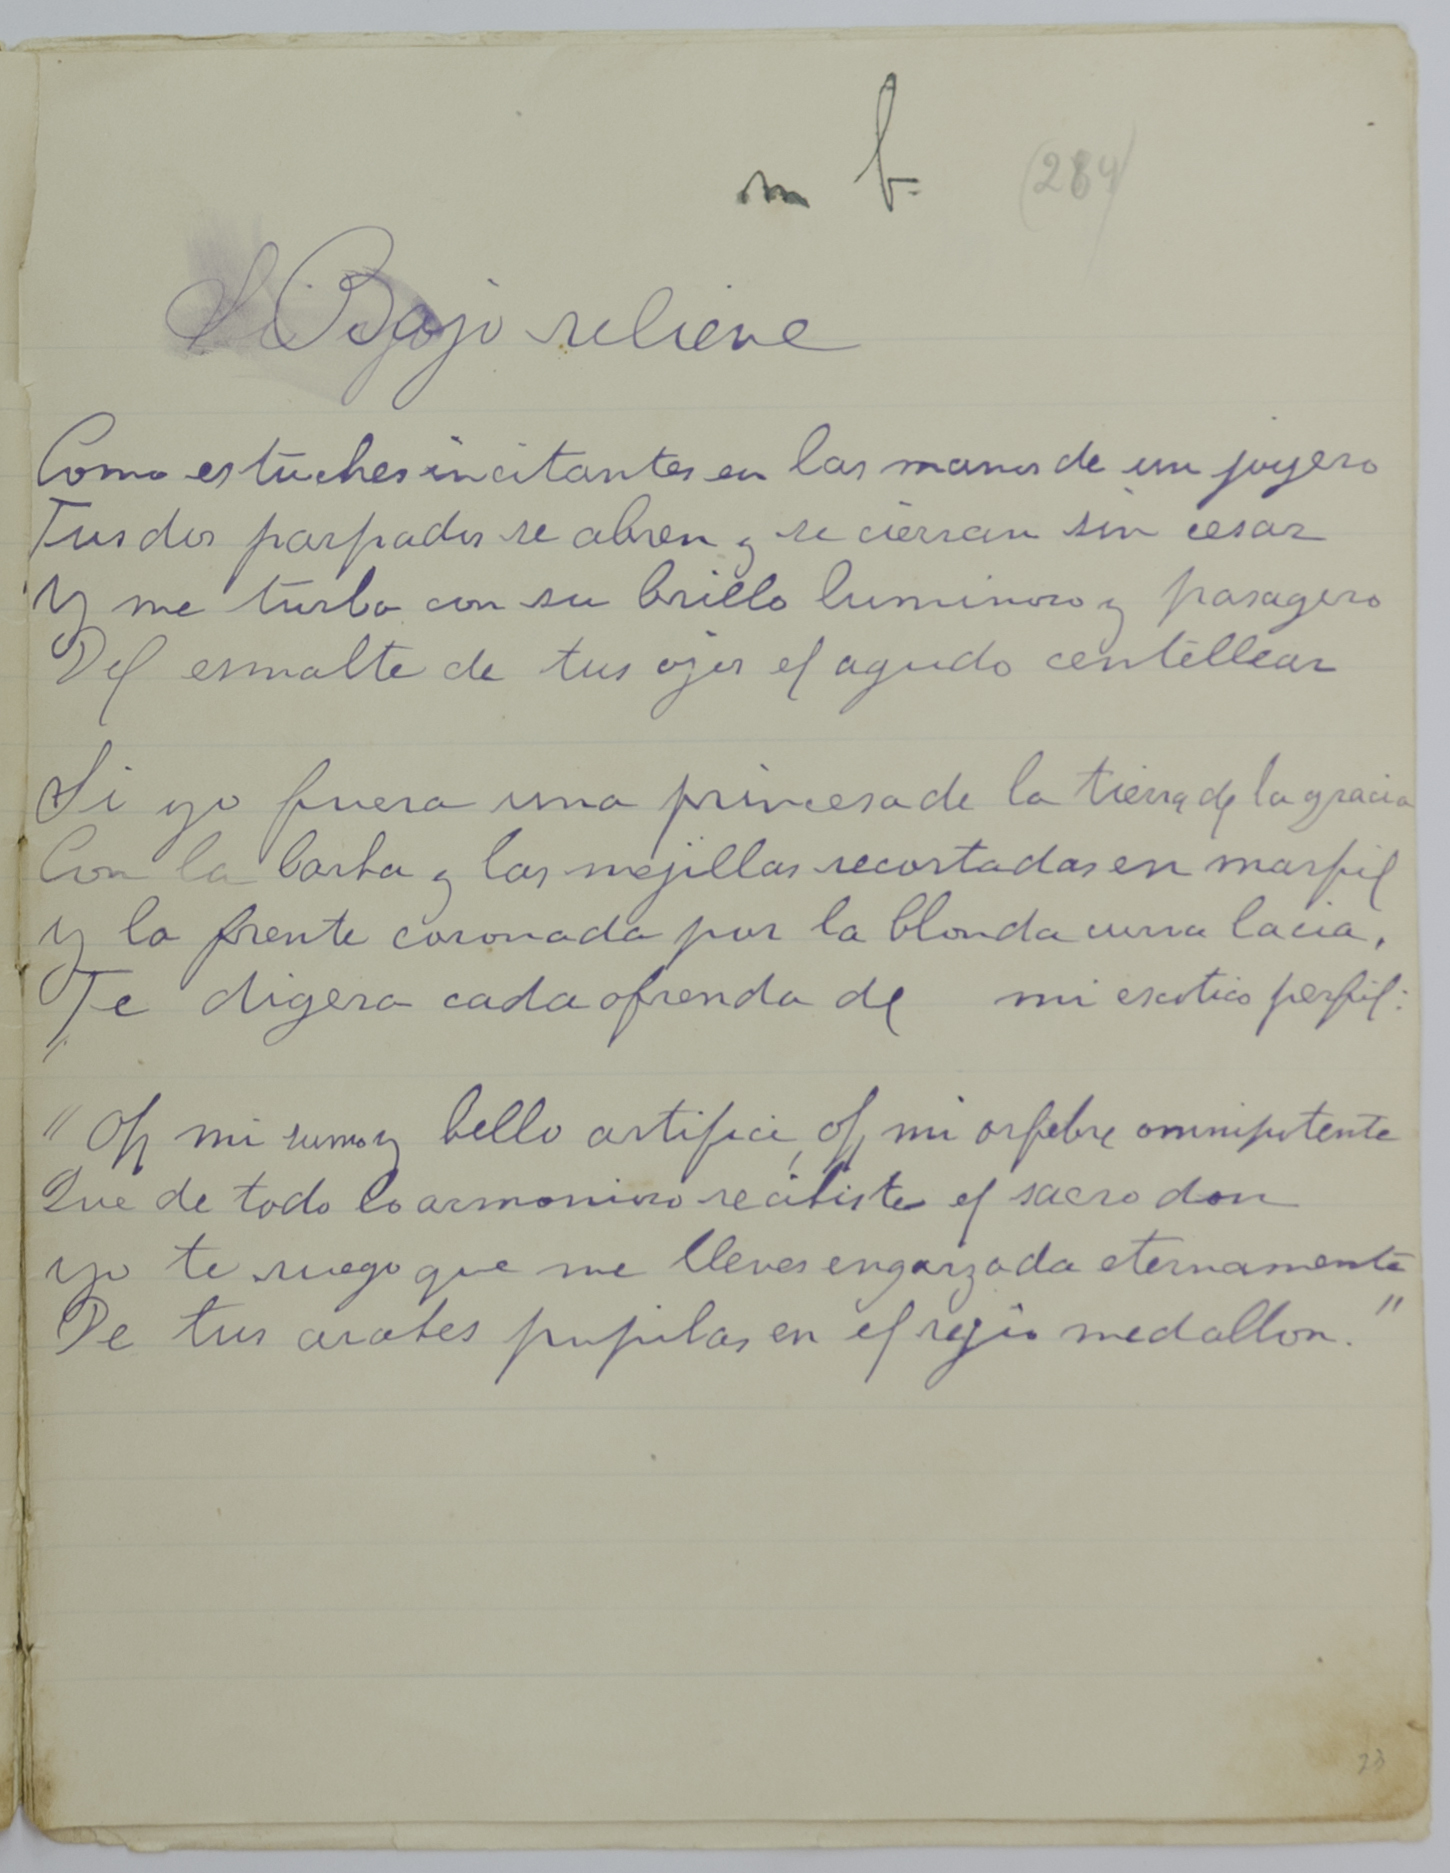 m b=
(284)
Bajo relieve
Como estuches incitantes en las manos de un joyero
Tus dos parpados se abren y se cierran sin cesar
Y me turba con su brillo luminoso y pasagero
Del esmalte de tus ojos el agudo centellear
Si yo fuera una princesa de la tierra de la gracia
Con la barba y las mejillas recortadas en marfil
Y la frente coronada por la blonda curva lacia,
Te digera cada ofrenda de mi exotico perfil:
"Oh mi sumo y bello artifice, oh mi orfebre omnipotente
Que de todo lo armonioso recibiste el sacro don
Yo te ruego que me lleves engarzada eternamente
De tus arabes pupilas en el regio medallon."
23